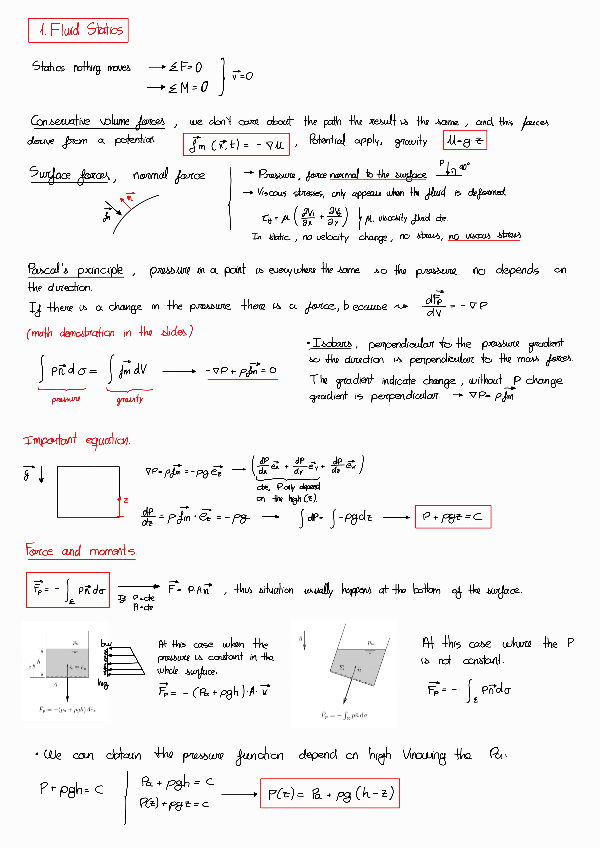 1. Fluid Statics
Statics nothing moves → ≤ F=0
→ ≤ M=0
v⃗=0
Conservative volume forces, we don't care about the path the result is the same, and this forces
derive from a potential f⃗m (r⃗,t) = -∇U, Potential apply, gravity U=g·z
Surface forces, normal force
f⃗m
n⃗
→ Pressure, force normal to the surface P 90°
→ Viscous stresses, only appears when the fluid is deformed
= μ (∂Vi/∂x + ∂Vj/∂y) μ. viscosity fluid cte.
In static, no velocity change, no stress, no viscous stress
Pascal's principle, pressure in a point is everywhere the same so the pressure no depends on
the direction.
If there is a change in the pressure there is a force, because → dF⃗p/dV = -∇P
(math demostration in the slides)
∫ Pn⃗dσ = ∫ f⃗m dV → -∇P + ρf⃗m = 0
pressure gravity
• Isobars, perpendicular to the pressure gradient
so the direction is perpendicular to the mass forces.
The gradient indicate change, without P change
gradient is perpendicular → ∇P= ρf⃗m
Important equation.
g⃗ ↓
z
∇P= ρf⃗m = -ρg e⃗z → (dP/dx e⃗x + dP/dy e⃗y + dP/dz e⃗z)
cte, P only depend
on the high (z).
dP/dz = ρf⃗m · e⃗z = -ρg → ∫dP= ∫-ρgdz → P + ρgz = C
Force and moments
F⃗p = - ∫Σ Pn⃗dσ → If P=cte A=cte F⃗= P·A·n⃗, this situation usually happens at the bottom of the surface.
low
high
At this case when the
pressure is constant in the
whole surface.
F⃗p = - (Pa + ρgh)·A·v⃗
At this case where the P
is not constant.
F⃗p = - ∫Σ Pn⃗dσ
• We can obtain the pressure function depend on high knowing the Pa:
P + ρgh = C
Pa + ρgh = C
P(z) + ρgz = C
→ P(z) = Pa + ρg (h-z)